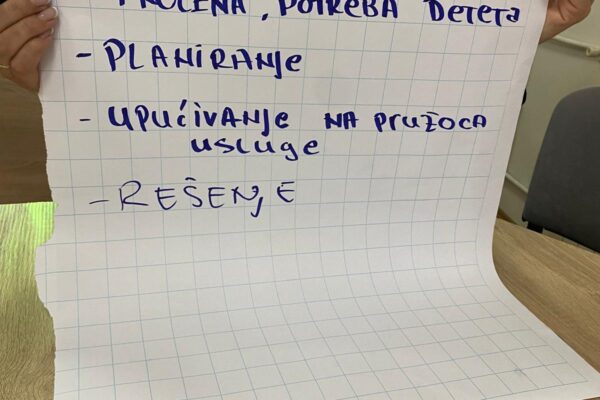 PROCENA, POTREBA DETETA
- PLANIRANJE
- UPUĆIVANJE NA PRUŽOCA
USLUGE
- REŠENJE